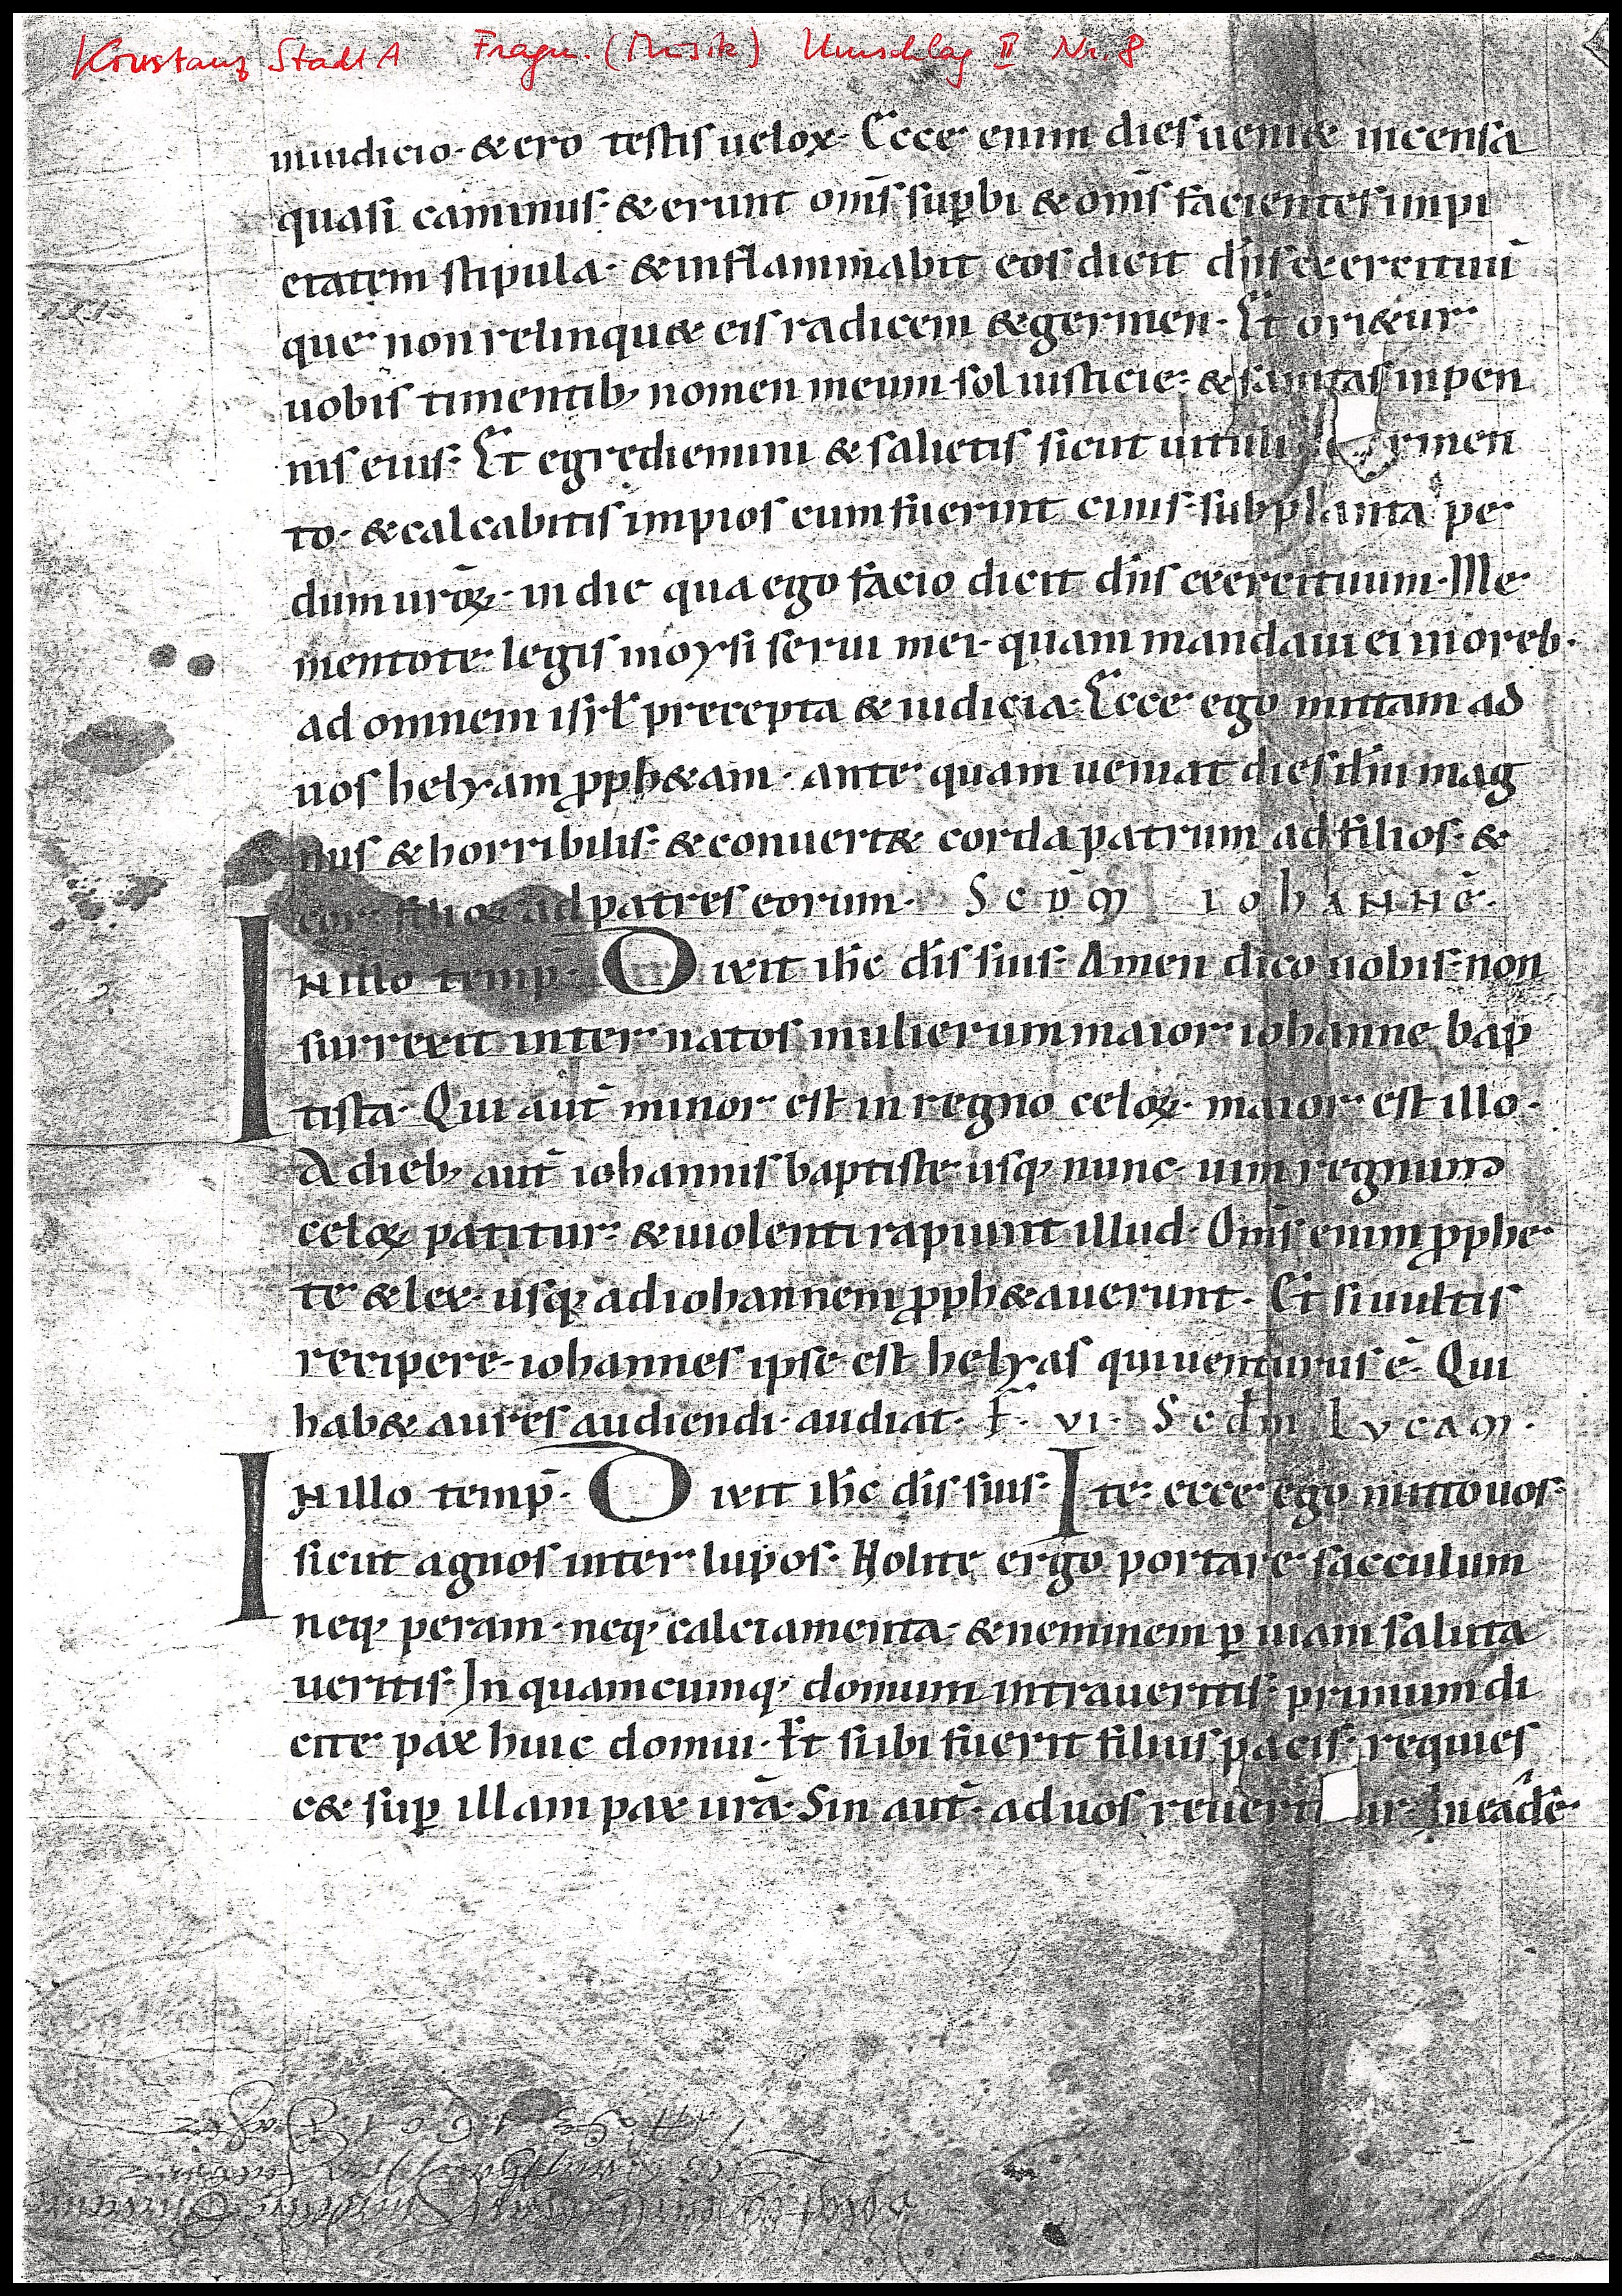 Konstanz Stadt A Fragm. (Musik) Umschlag II Nr. 8
iniudicio · & ero testis uelox · Ecce enim dies ueni& incensa
quasi caminus · & erunt om̄s sup̱bi & om̄s facientes impi
etatem stipula · & inflammabit eos dicit dn̄s exercituū
que non relinqu& eis radicem & germen · Et ori&ur
uobis timentib; nomen meum sol iusticie · & sanitas in pen
nis eius · Et egrediemini & salietis sicut uituli rmen
to · & calcabitis impios cum fuerint cinis sub planta pe
dum ur̄oꝝ · in die qua ego facio dicit dn̄s exercituum · Me
mentote legis moysi serui mei · quam mandaui ei inoreb ·
ad omnem isr̄l precepta & iudicia · Ecce ego mittam ad
uos helyam ꝓph&am · ante quam ueniat dies dn̄i mag
nus & horribilis · & conuert& corda patrum ad filios · &
cor filioꝝ ad patres eorum · Scd̄m iohannē ·
In illo temp̄ · Dixit ih̄c dis̄ suis · Amen dico uobis · non
surrexit inter natos mulierum maior iohanne bap
tista · Qui aut̄ minor est in regno celoꝝ · maior est illo ·
A dieb; aut̄ iohannis baptiste usq; nunc · uim regnum
celoꝝ patitur · & uiolenti rapiunt illud · Om̄s enim ꝓphe
te & lex · usq; ad iohannem ꝓph&auerunt · Et si uultis
recipere · iohannes ipse est helyas qui uenturus ē · Qui
hab& aures audiendi · audiat · F̄ · vi · Scdm̄ lvcam ·
In illo temp̄ · Dixit ih̄c dis̄ suis · Ite · ecce ego mitto uos ·
sicut agnos inter lupos · Nolite ergo portare sacculum
neq; peram · neq; calciamenta · & neminem ꝑ uiam saluta
ueritis · In quamcumq; domum intraueritis · primum di
cite pax huic domui · Et si ibi fuerit filius pacis · requies
c& sup̱ illam pax ur̄a · Sin aut̄ · ad uos reuert ur · In eadē